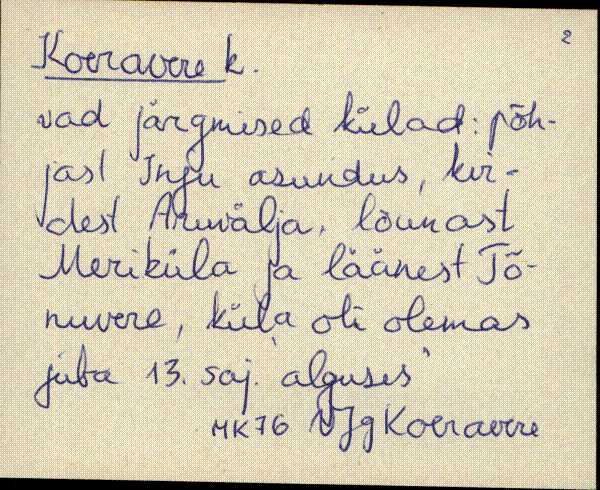 2
Koeravere k.
vad järgmised külad: põh-
jast Inju asundus, kir-
dest Aruvälja, lõunast
Meriküla ja läänest Tõ-
nuvere, küla oli olemas
juba 13. saj. alguses"
MK76 VJg Koeravere